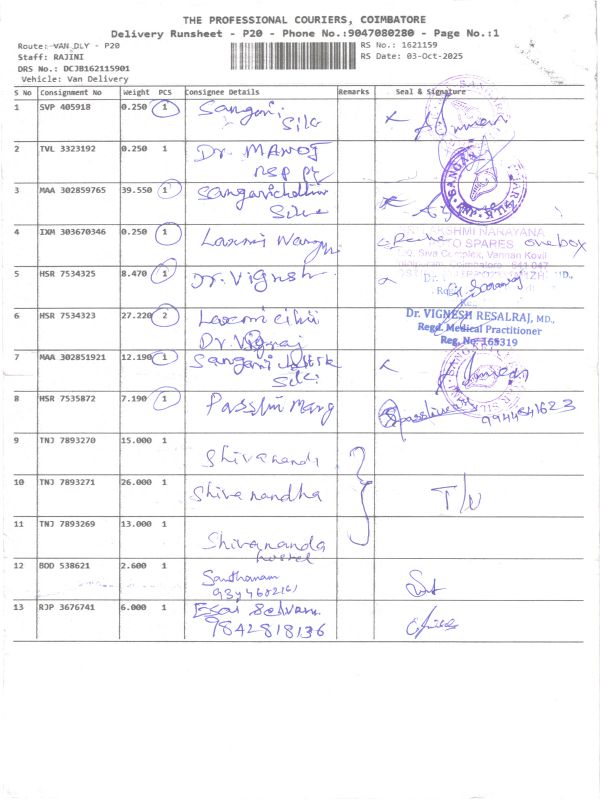 THE PROFESSIONAL COURIERS, COIMBATORE
Delivery Runsheet - P20 - Phone No.:9047080280 - Page No.:1
Route: VAN DLY - P20
RS No.: 1621159
Staff: RAJINI
RS Date: 03-Oct-2025
DRS No.: DCJB162115901
Vehicle: Van Delivery
S No Consignment No Weight PCS Consignee Details Remarks Seal & Signature
1 SVP 405918 0.250 1 Sangani
Silk
2 TVL 3323192 0.250 1 Dr. MANOJ
3 MAA 302859765 39.550 1
4 IXM 303670346 0.250 1 Laxmi
LAKSHMI NARAYANA
AUTO SPARES one box
Siva Complex, Vannan Kovil
5 HSR 7534325 8.470 1 Dr. Vignesh
6 HSR 7534323 27.220 2 Laxmi
Dr. VIGNESH RESALRAJ, MD.,
Regd. Medical Practitioner
Reg. No 165319
7 MAA 302851921 12.190 1 Sangani
8 HSR 7535872 7.190 1
9944541623
9 TNJ 7893270 15.000 1 Shivananda
10 TNJ 7893271 26.000 1 Shivanandha
11 TNJ 7893269 13.000 1 Shivananda
hostel
12 BOD 538621 2.600 1 Santhanam
13 RJP 3676741 6.000 1 Esai Selvam
9842818136